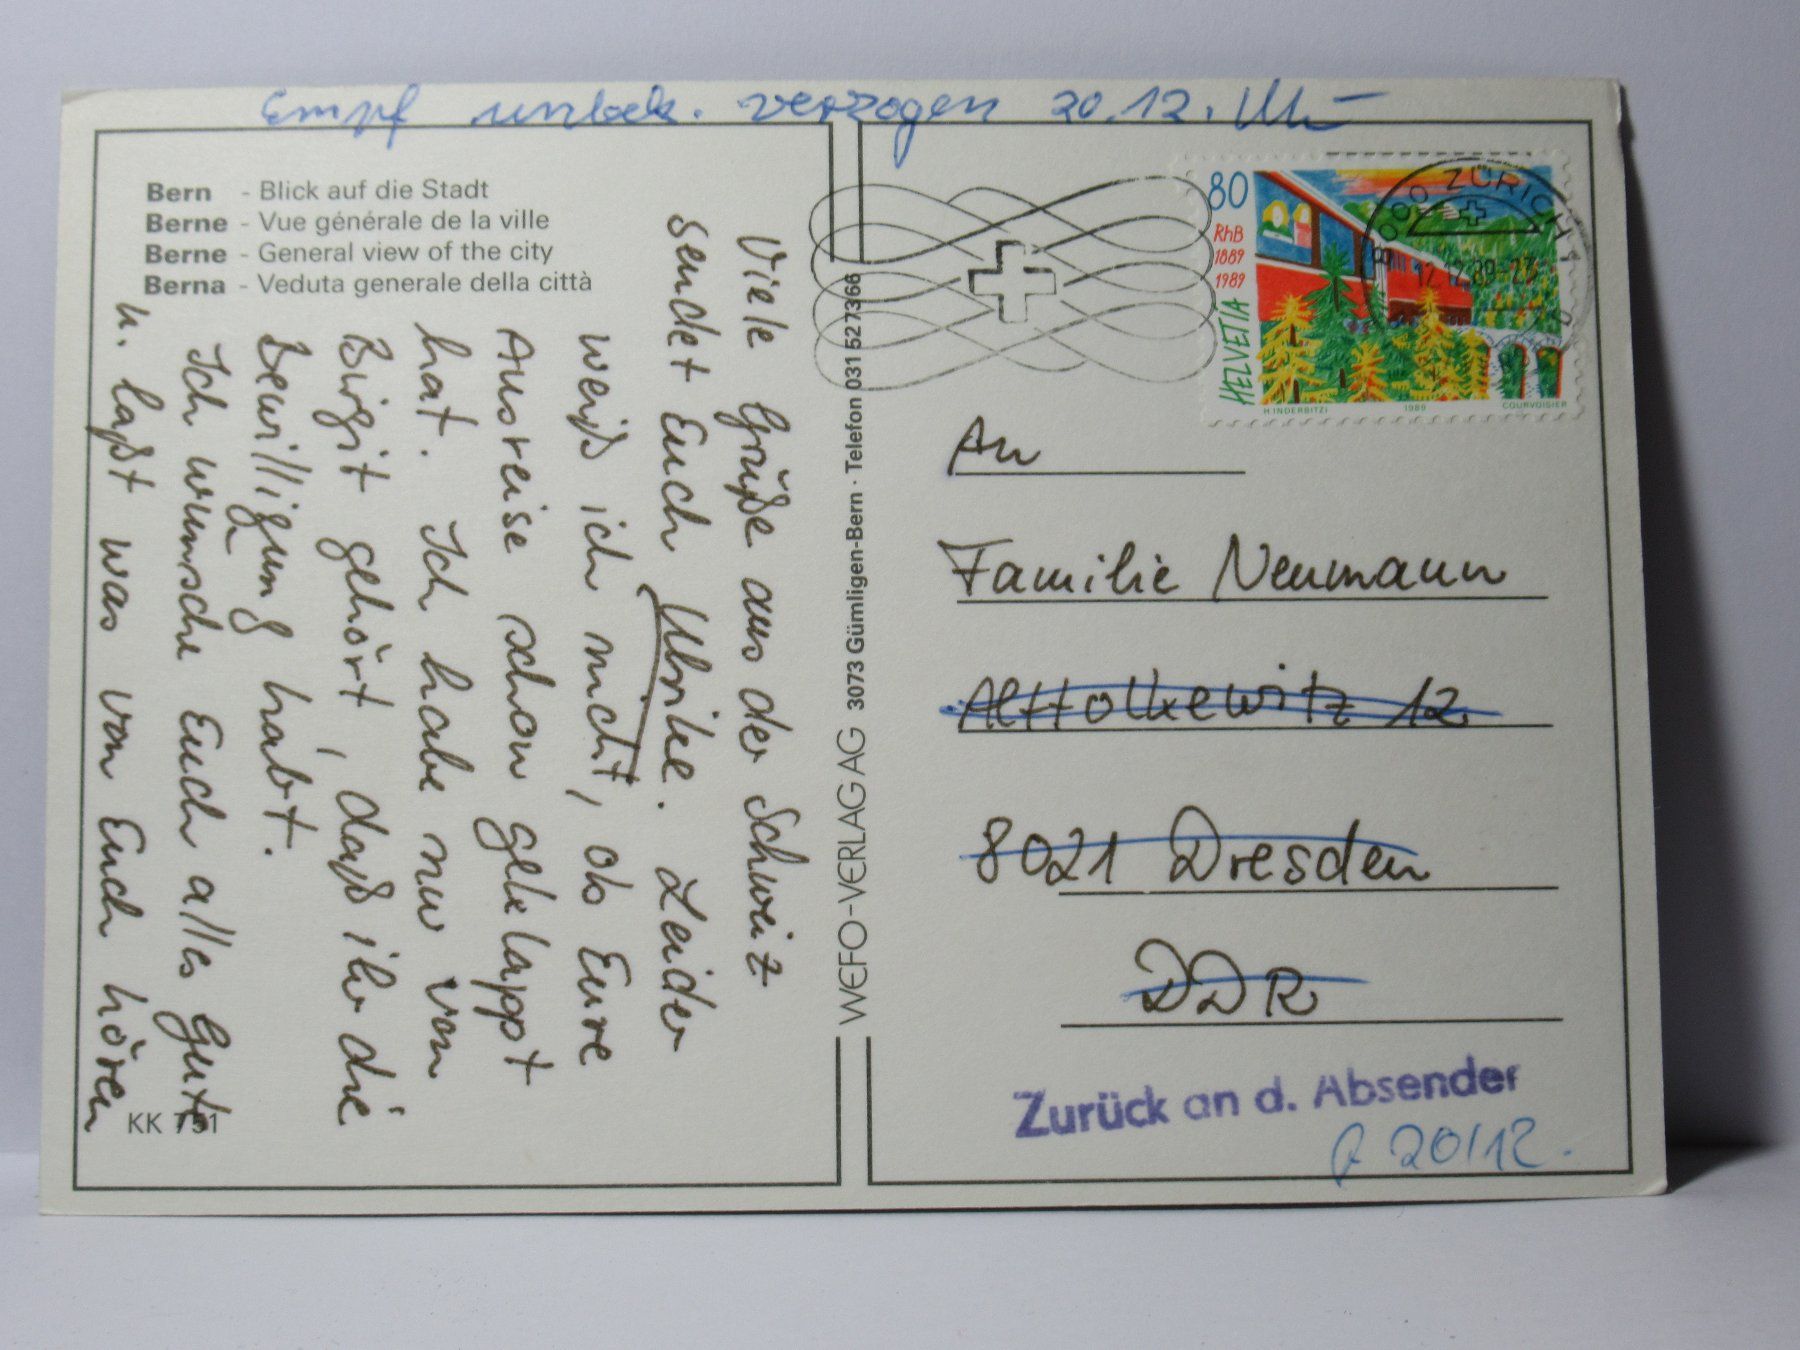 Empf unbek. verzogen 20.12.
Bern - Blick auf die Stadt
Berne - Vue générale de la ville
Berne - General view of the city
Berna - Veduta generale della città
Viele Grüße aus der Schweiz
sendet Euch Ulrike. Leider
weiß ich nicht, ob Eure
Ausreise schon geklappt
hat. Ich habe nur von
Birgit gehört, daß ihr die
Bewilligung habt.
Ich wünsche Euch alles Gute
u. laßt was von Euch hören
KK 751
WEFO-VERLAG AG 3073 Gümligen-Bern · Telefon 031 527366
80
RhB
1889
1989
HELVETIA
H. INDERBITZI 1989 COURVOISIER
8000 ZÜRICH 1
12.12.89-23
An
Familie Neumann
Alttolkewitz 12
8021 Dresden
DDR
Zurück an d. Absender
20/12.